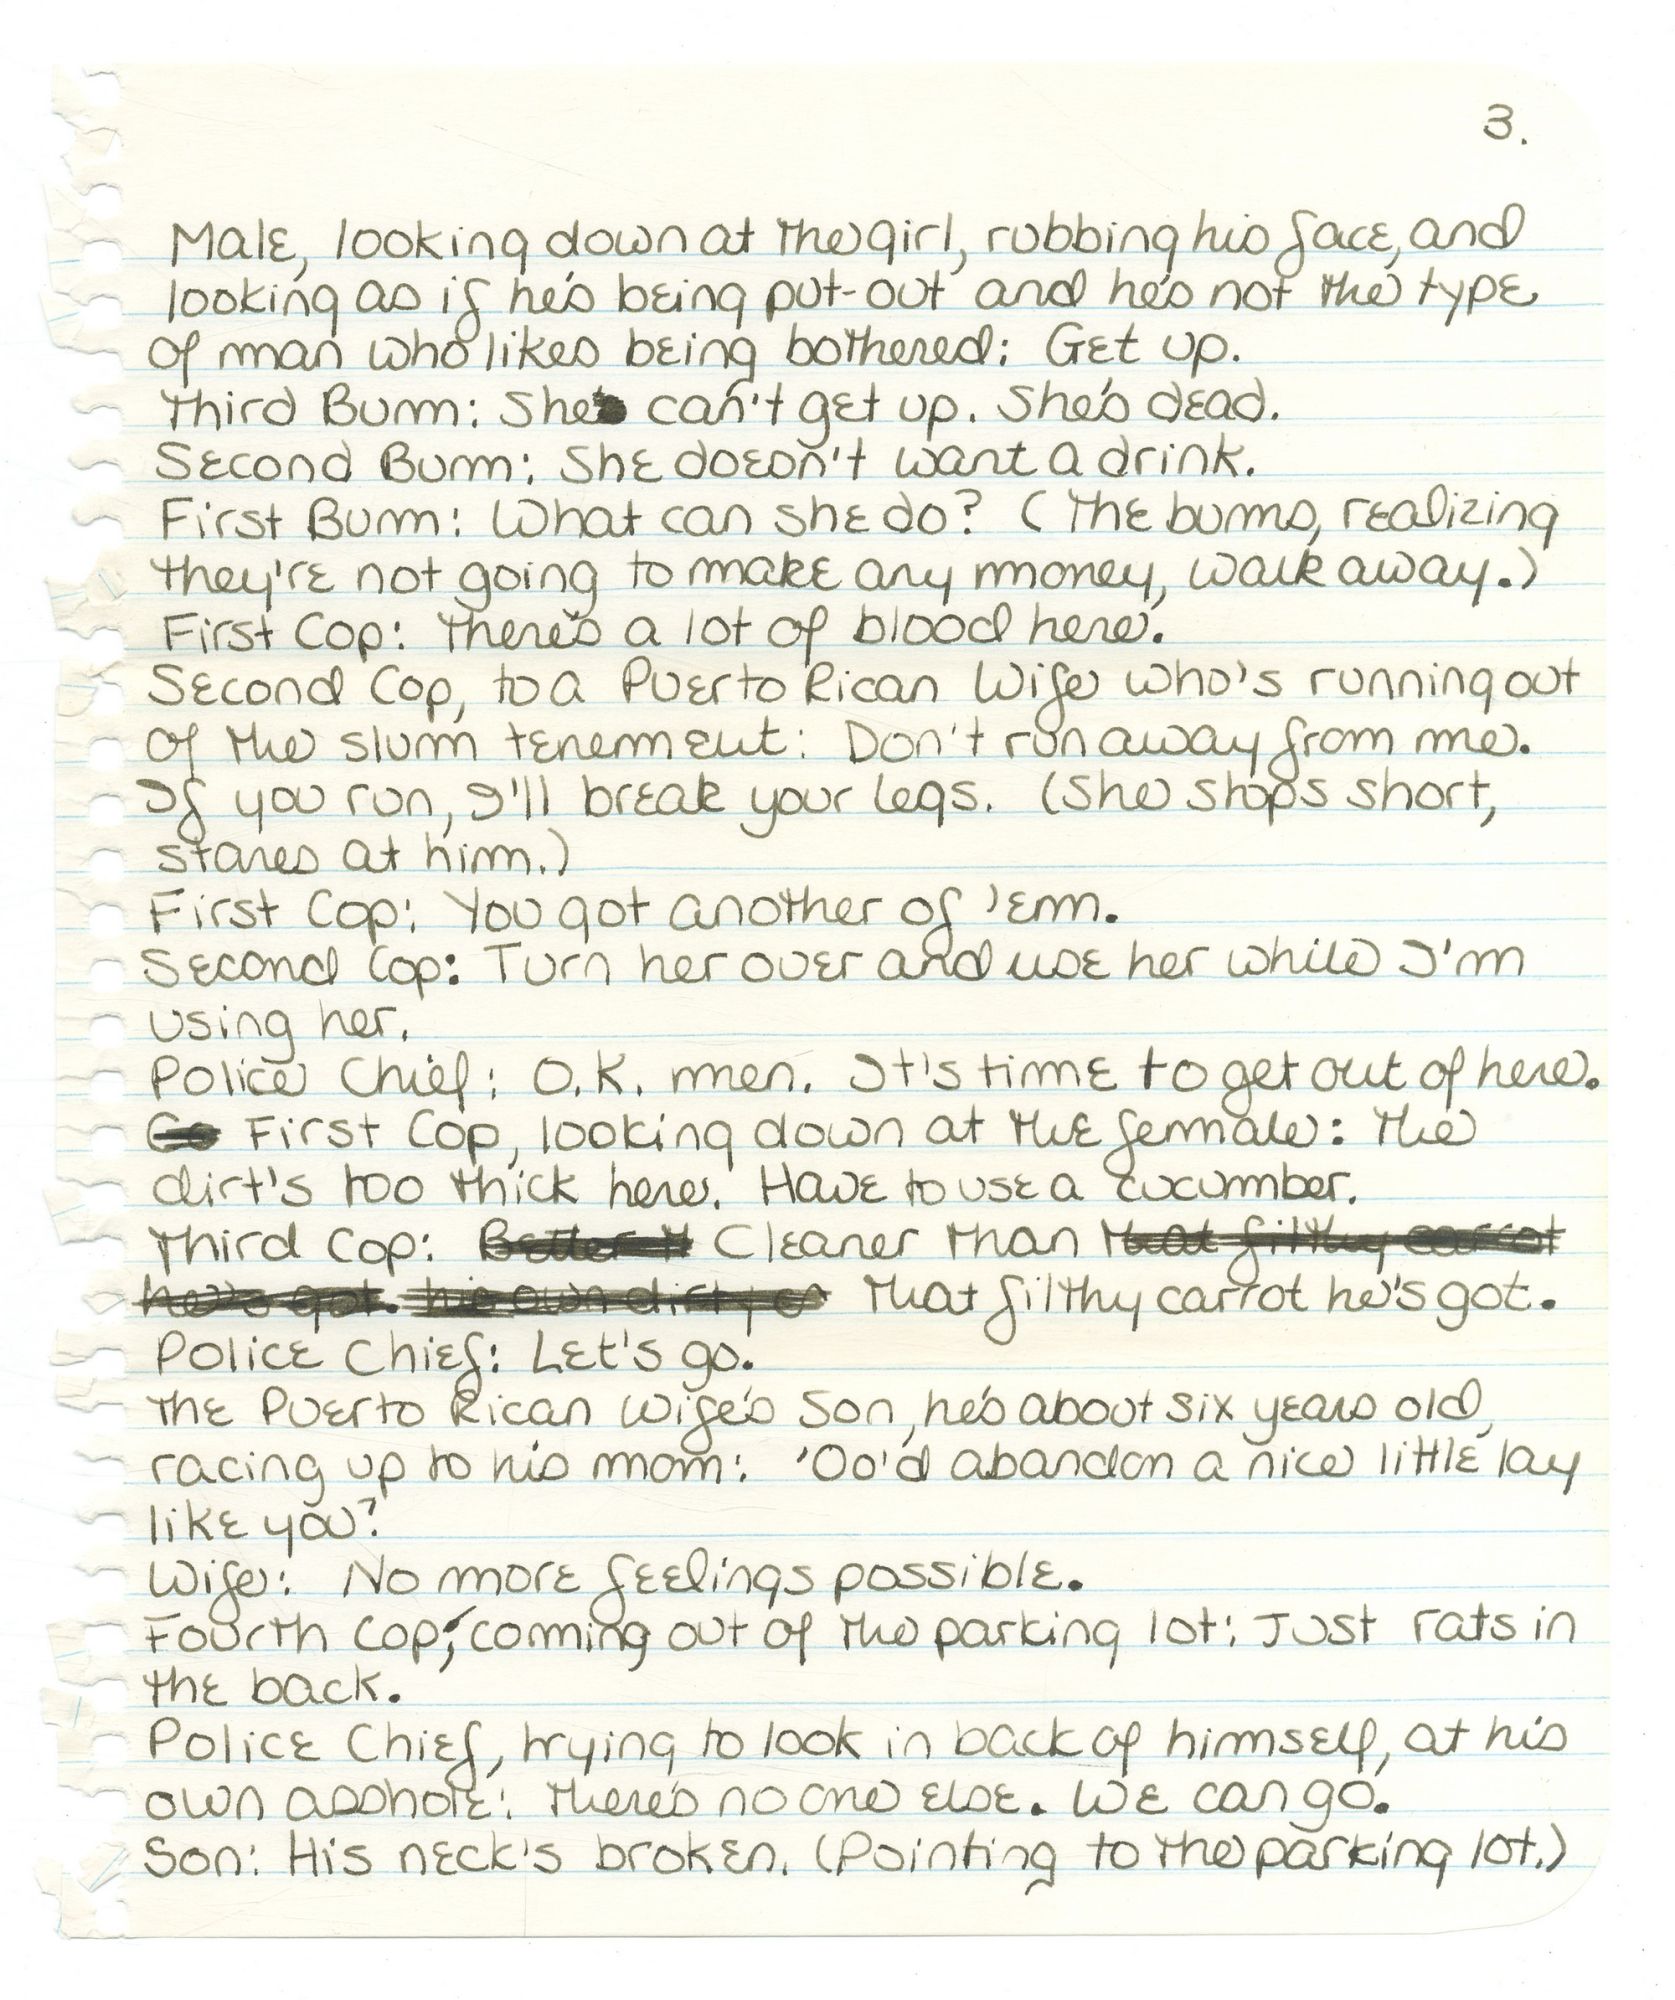 3.
Male, looking down at the girl, rubbing his face, and
looking as if he's being put-out and he's not the type
of man who likes being bothered: Get up.
Third Bum: She can't get up. She's dead.
Second Bum: She doesn't want a drink.
First Bum: What can she do? (The bums, realizing
they're not going to make any money, walk away.)
First Cop: There's a lot of blood here.
Second Cop, to a Puerto Rican Wife who's running out
of the slum tenement: Don't run away from me.
If you run, I'll break your legs. (She stops short,
stares at him.)
First Cop: You got another of 'em.
Second Cop: Turn her over and use her while I'm
using her.
Police Chief: O.K. men. It's time to get out of here.
Go First Cop, looking down at the female: The
dirt's too thick here. Have to use a cucumber.
Third Cop: Better it Cleaner than that filthy carrot
he's got. his own dirty That filthy carrot he's got.
Police Chief: Let's go.
The Puerto Rican Wife's Son, he's about six years old,
racing up to his mom: 'Oo'd abandon a nice little lay
like you?
Wife: No more feelings possible.
Fourth Cop, coming out of the parking lot: Just rats in
the back.
Police Chief, trying to look in back of himself, at his
own asshole: There's no one else. We can go.
Son: His neck's broken. (Pointing to the parking lot.)